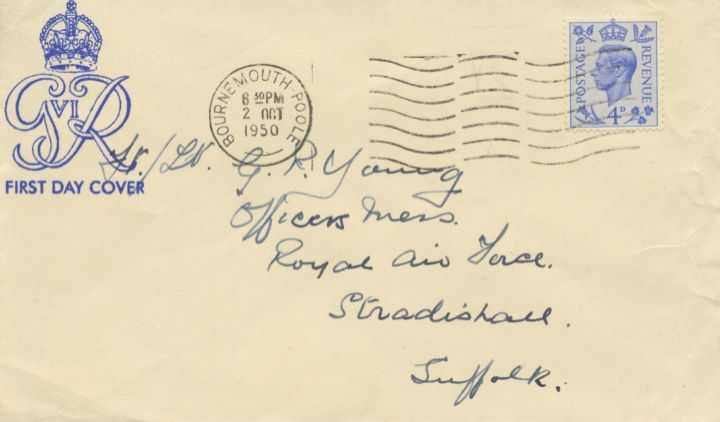 GVIR
FIRST DAY COVER
BOURNEMOUTH-POOLE
6 30PM
2 OCT
1950
POSTAGE REVENUE
4D
Ft./Lt. G. P. Young
Officers Mess.
Royal Air Force.
Stradishall.
Suffolk.